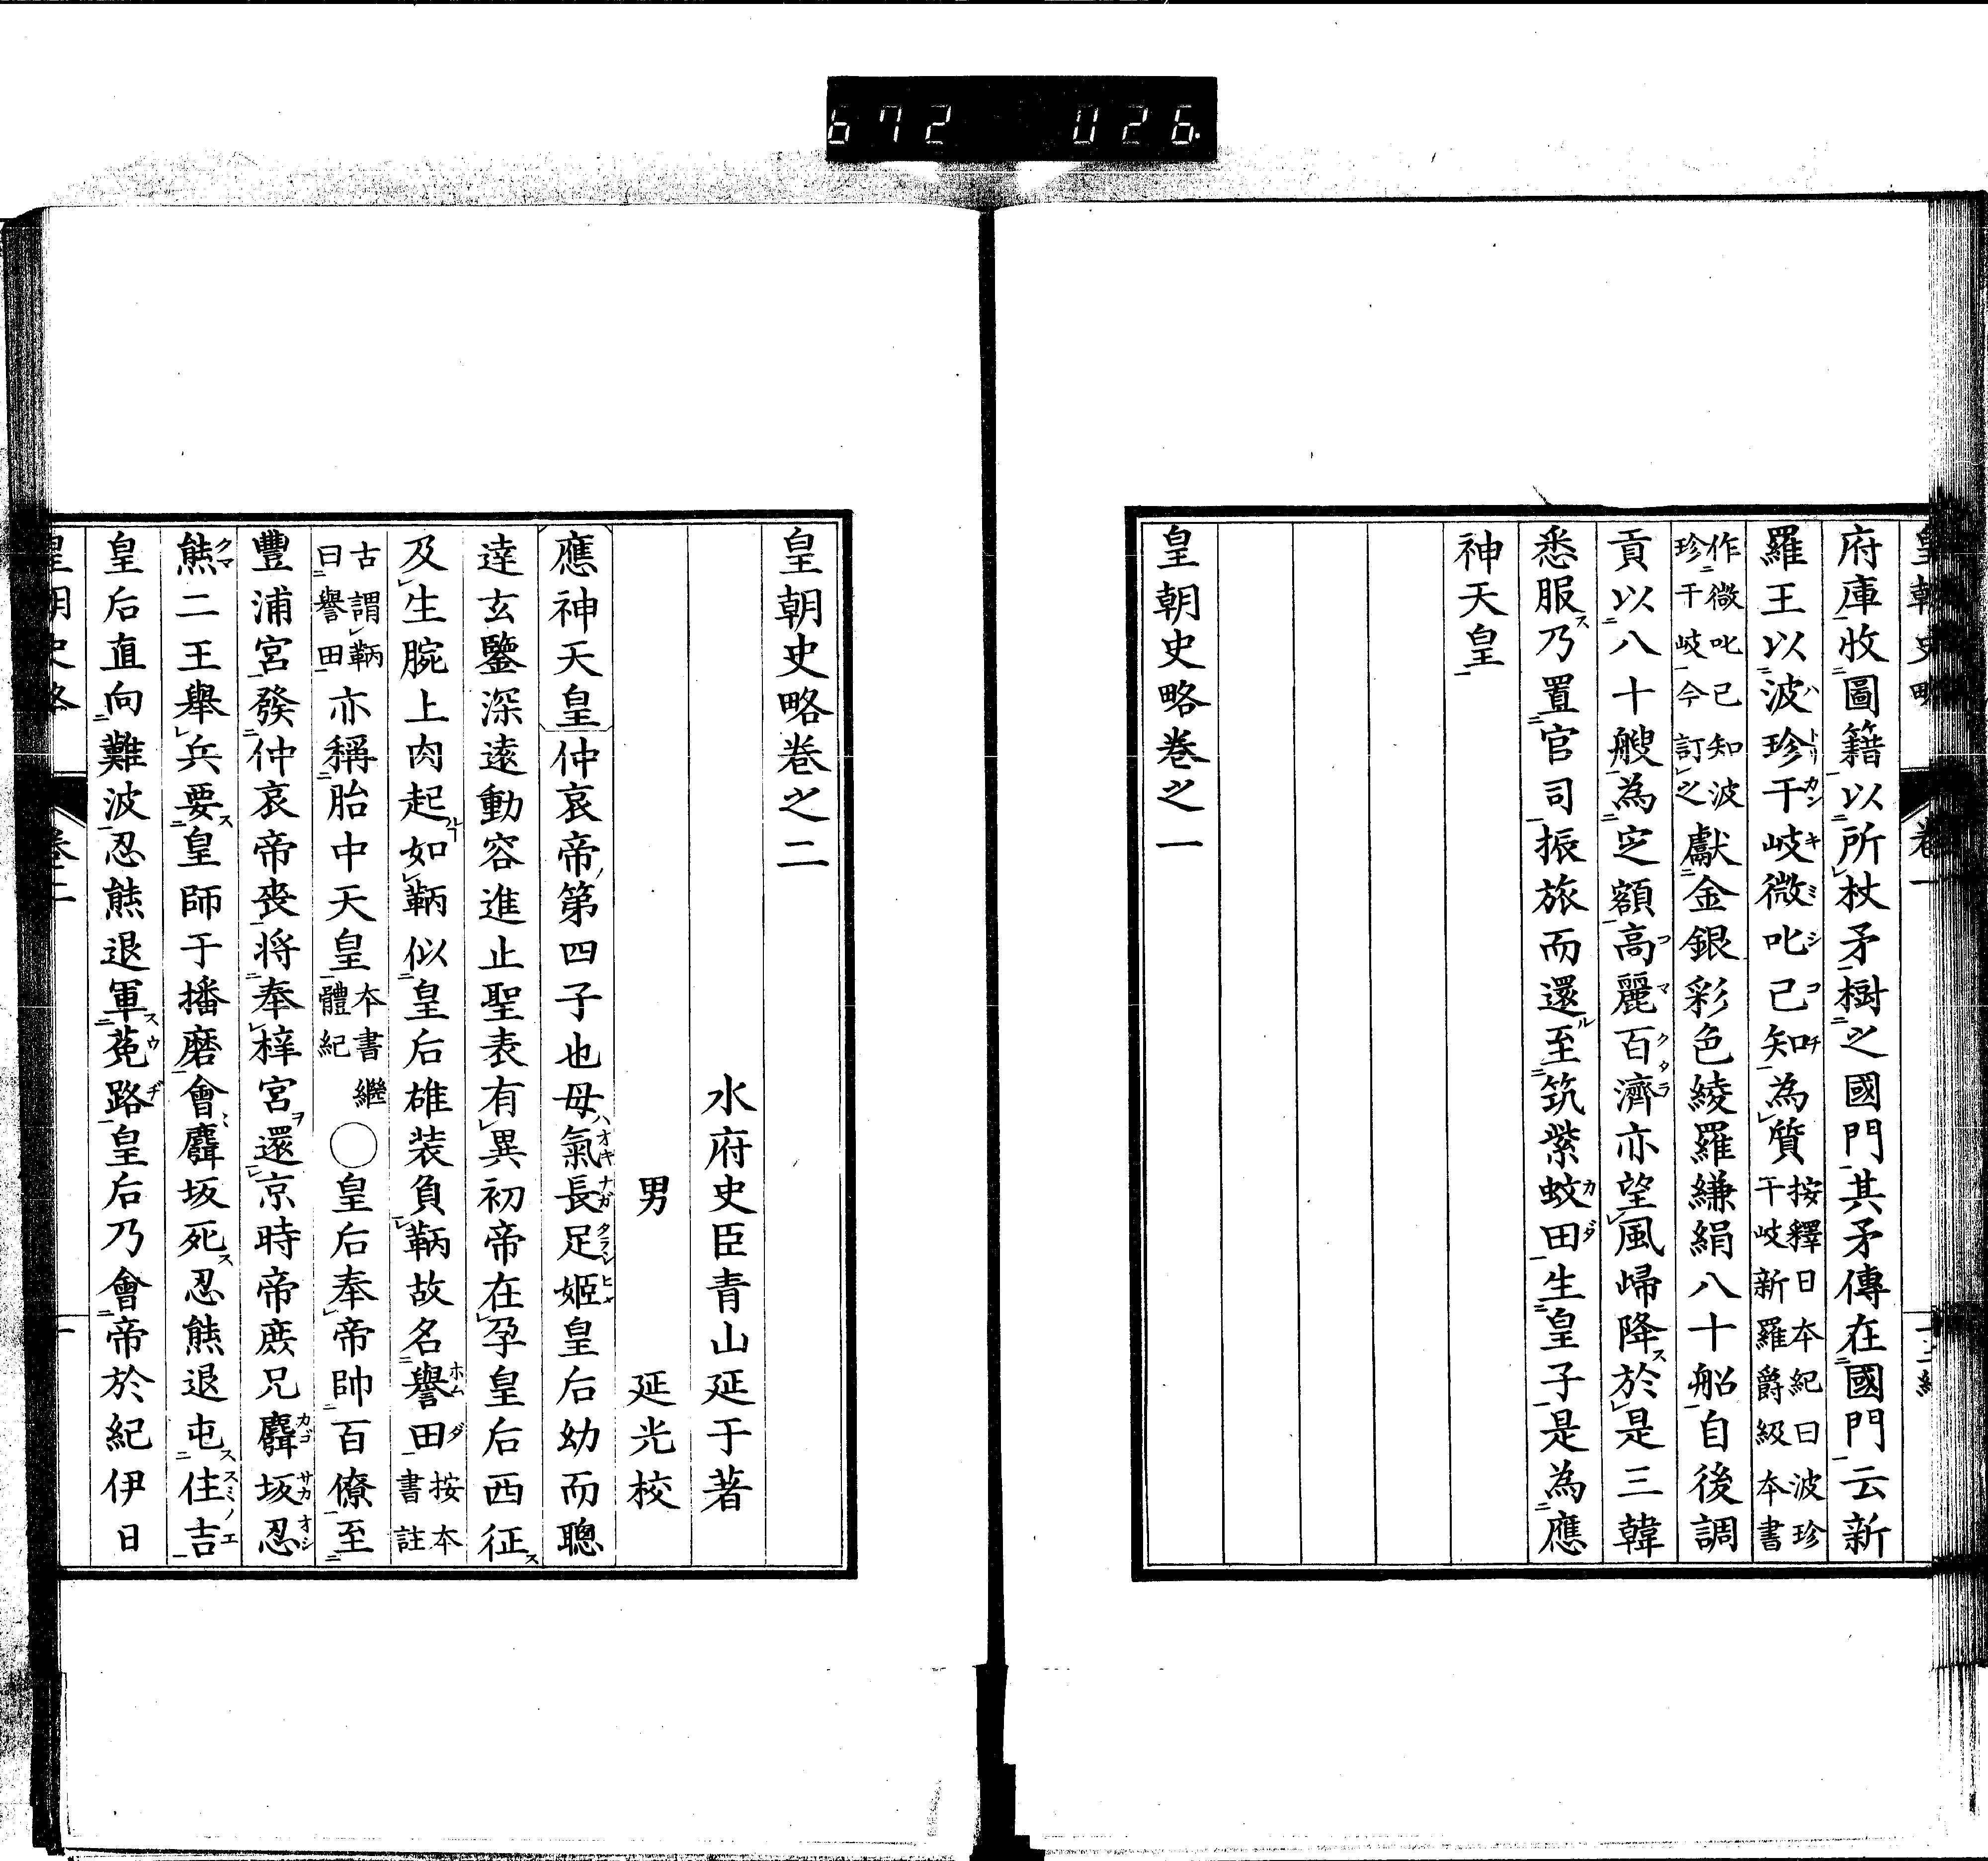 672 026
府庫收圖籍以所杖矛樹之國門其矛傳在國門云新
羅王以波珍干岐微叱己知為質按釋日本紀曰波珍干岐新羅爵級本書
作微叱己知波珍干岐今訂之獻金銀彩色綾羅縑絹八十船自後調
貢以八十艘為定額高麗百濟亦望風歸降於是三韓
悉服乃置官司振旅而還至筑紫蚊田生皇子是為應
神天皇
皇朝史略巻之一
皇朝史略巻之二
水府史臣青山延于著
男 延光校
應神天皇仲哀帝第四子也母氣長足姬皇后幼而聰
達玄鑒深遠動容進止聖表有異初帝在孕皇后西征
及生腕上肉起如鞆似皇后雄裝負鞆故名譽田按本書註
古謂鞆曰譽田亦稱胎中天皇本書繼體紀○皇后奉帝帥百僚至
豐浦宮發仲哀帝喪將奉梓宮還京時帝庶兄麛坂忍
熊二王舉兵要皇師于播磨會麛坂死忍熊退屯住吉
皇后直向難波忍熊退軍菟路皇后乃會帝於紀伊日